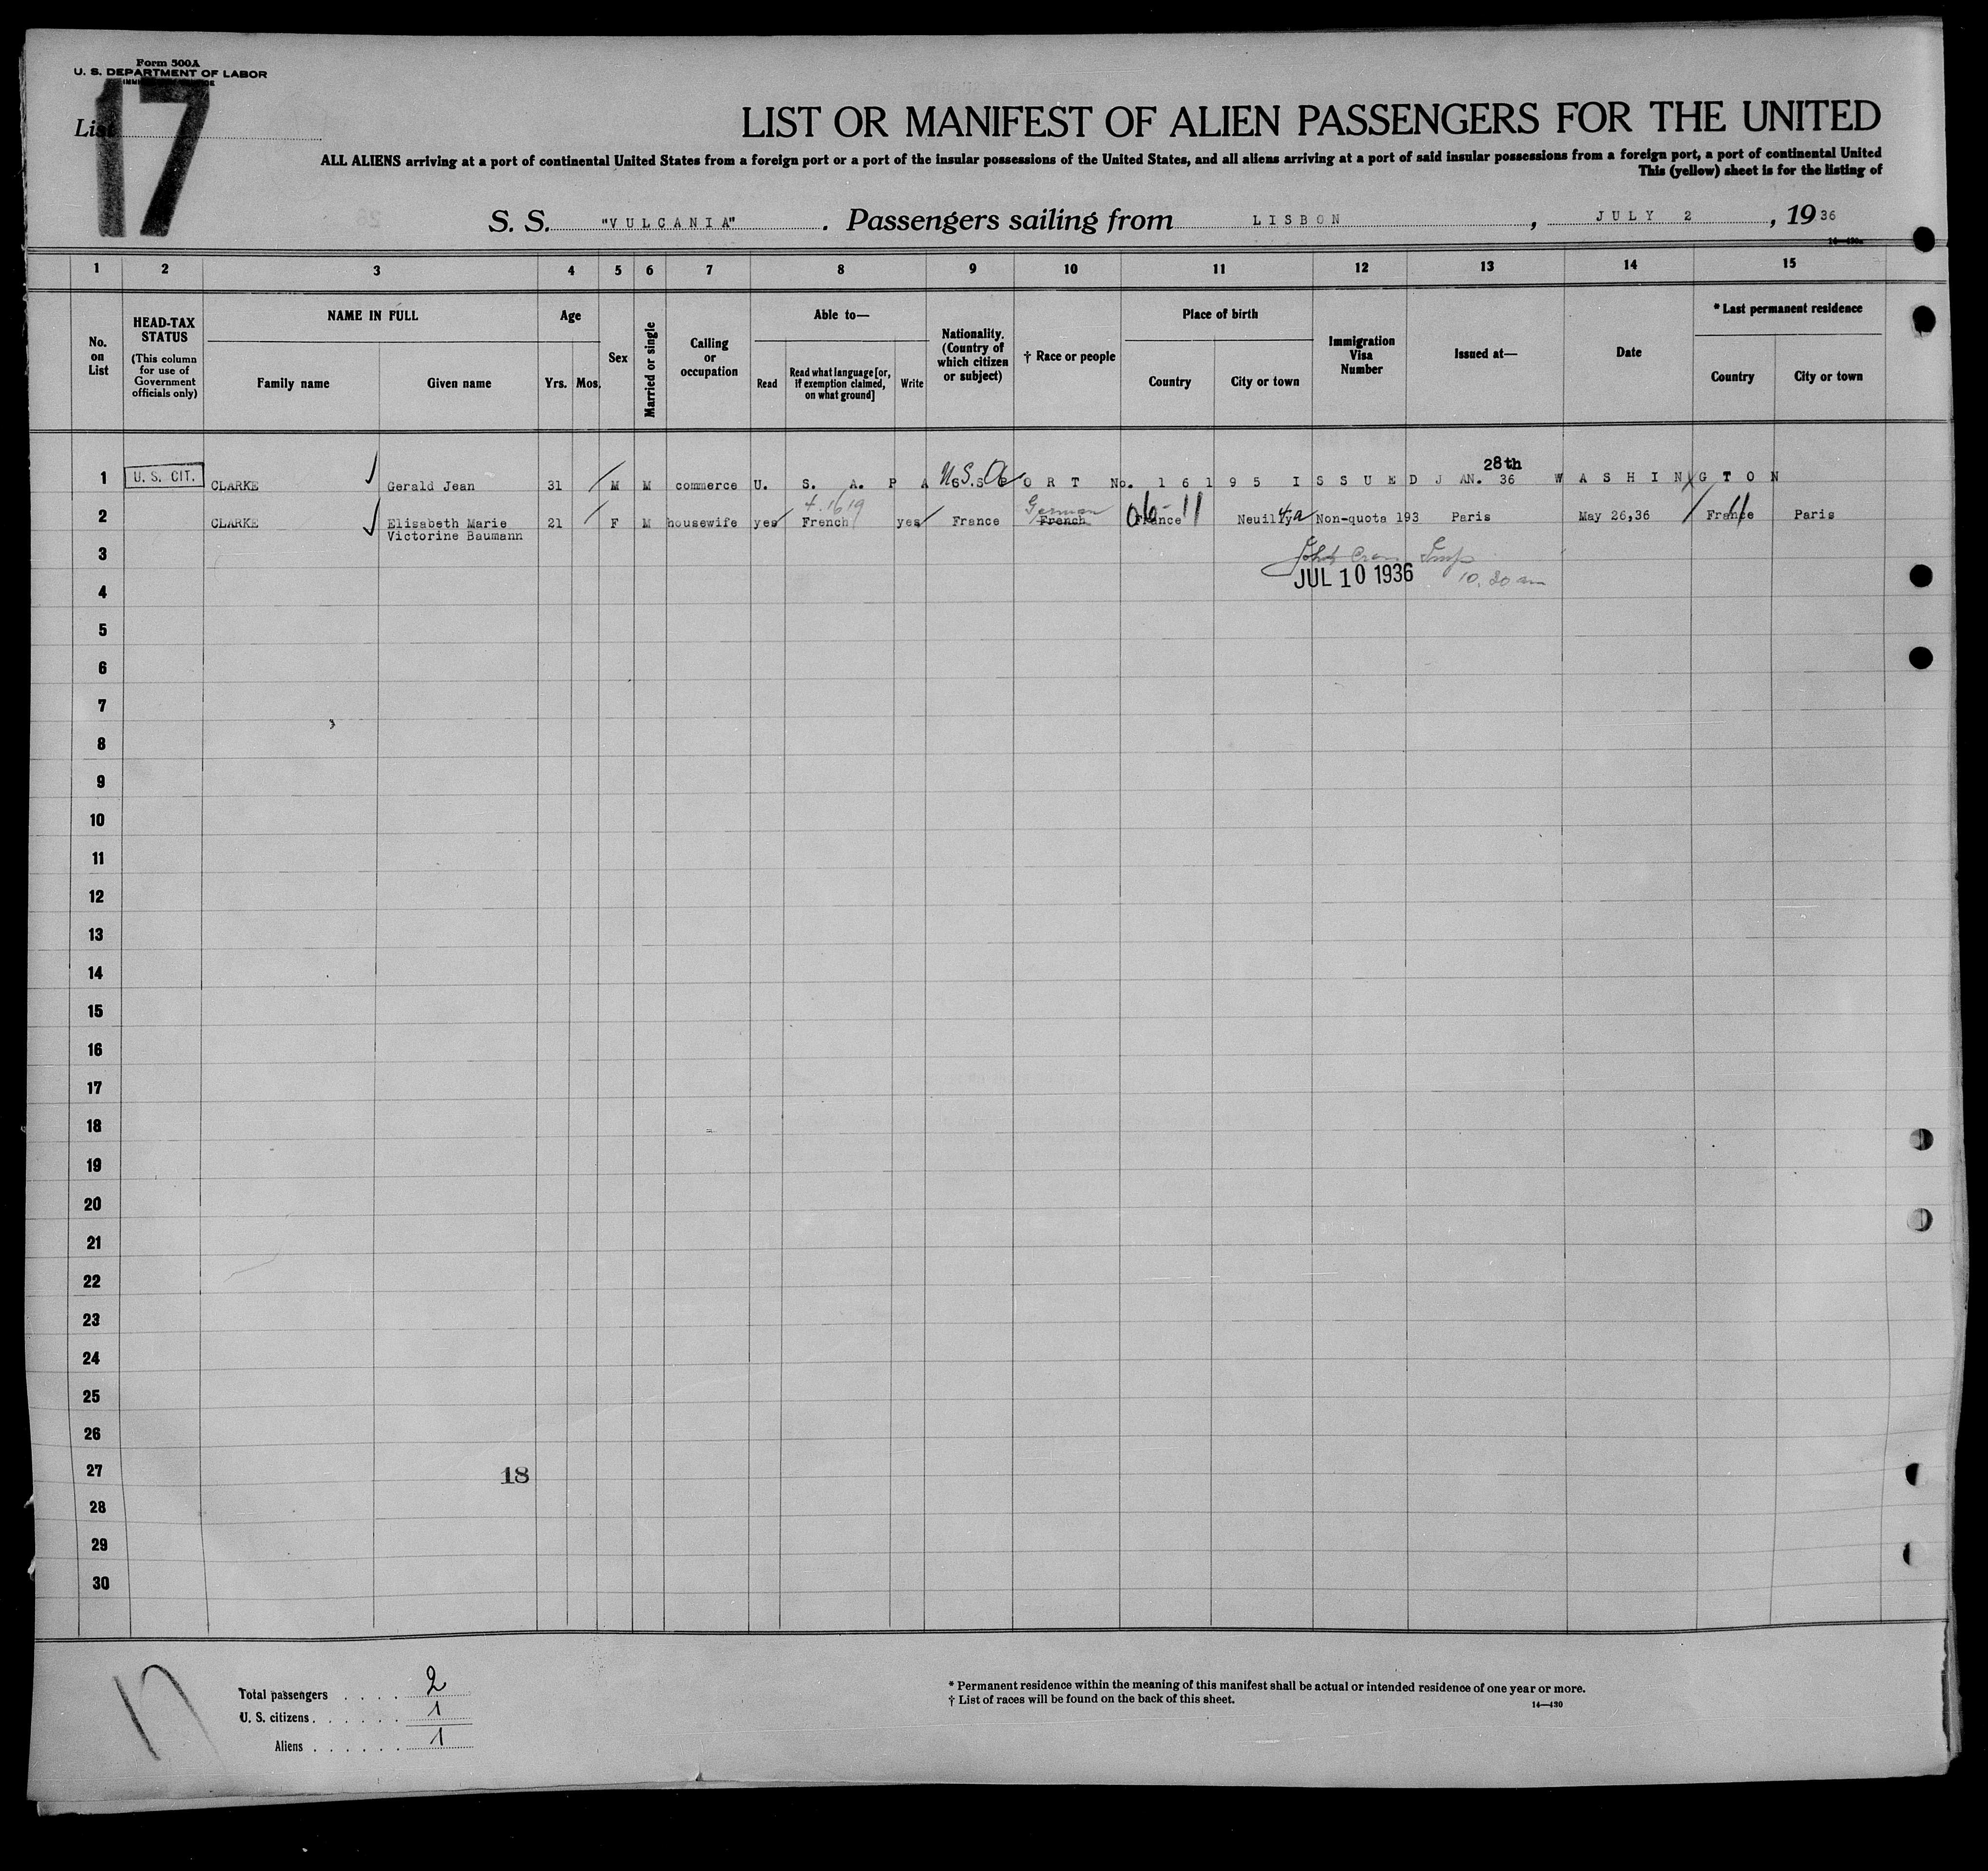 Form 500A
U. S. DEPARTMENT OF LABOR
17
List
LIST OR MANIFEST OF ALIEN PASSENGERS FOR THE UNITED
ALL ALIENS arriving at a port of continental United States from a foreign port or a port of the insular possessions of the United States, and all aliens arriving at a port of said insular possessions from a foreign port, a port of continental United
This (yellow) sheet is for the listing of
S. S. "VULCANIA". Passengers sailing from LISBON, JULY 2, 19 36
1 2 3 4 5 6 7 8 9 10 11 12 13 14 15
No. on List
HEAD-TAX STATUS (This column for use of Government officials only)
NAME IN FULL
Family name Given name
Age
Yrs. Mos.
Sex
Married or single
Calling or occupation
Able to—
Read Read what language [or, if exemption claimed, on what ground] Write
Nationality. (Country of which citizen or subject)
† Race or people
Place of birth
Country City or town
Immigration Visa Number
Issued at—
Date
* Last permanent residence
Country City or town
28th
1 U. S. CIT. CLARKE Gerald Jean 31 M M commerce U. S. A. PASSPORT No. 16195 ISSUED JAN. 36 WASHINGTON
U.S.
4.1619 German
2 CLARKE Elisabeth Marie 21 F M housewife yes French yes France French France Neuilly Non-quota 193 Paris May 26,36 France Paris
Victorine Baumann
06-11 4a 11
3
JUL 10 1936 10.20 am
4
5
6
7
8
9
10
11
12
13
14
15
16
17
18
19
20
21
22
23
24
25
26
27 18
28
29
30
17
Total passengers . . . . 2
U. S. citizens . . . . . . 1
Aliens . . . . . . 1
* Permanent residence within the meaning of this manifest shall be actual or intended residence of one year or more.
† List of races will be found on the back of this sheet. 14—430